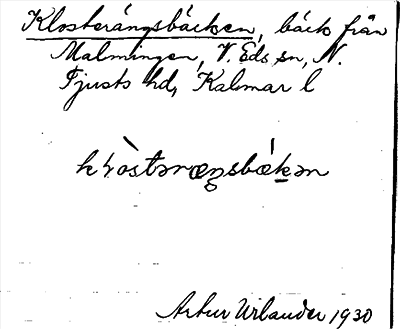 Klosterängsbäcken, bäck från
Malmingen, V. Eds sn, N.
Tjusts hd, Kalmar l
kɬòstərœŋsbǽkən
Artur Urlander 1930